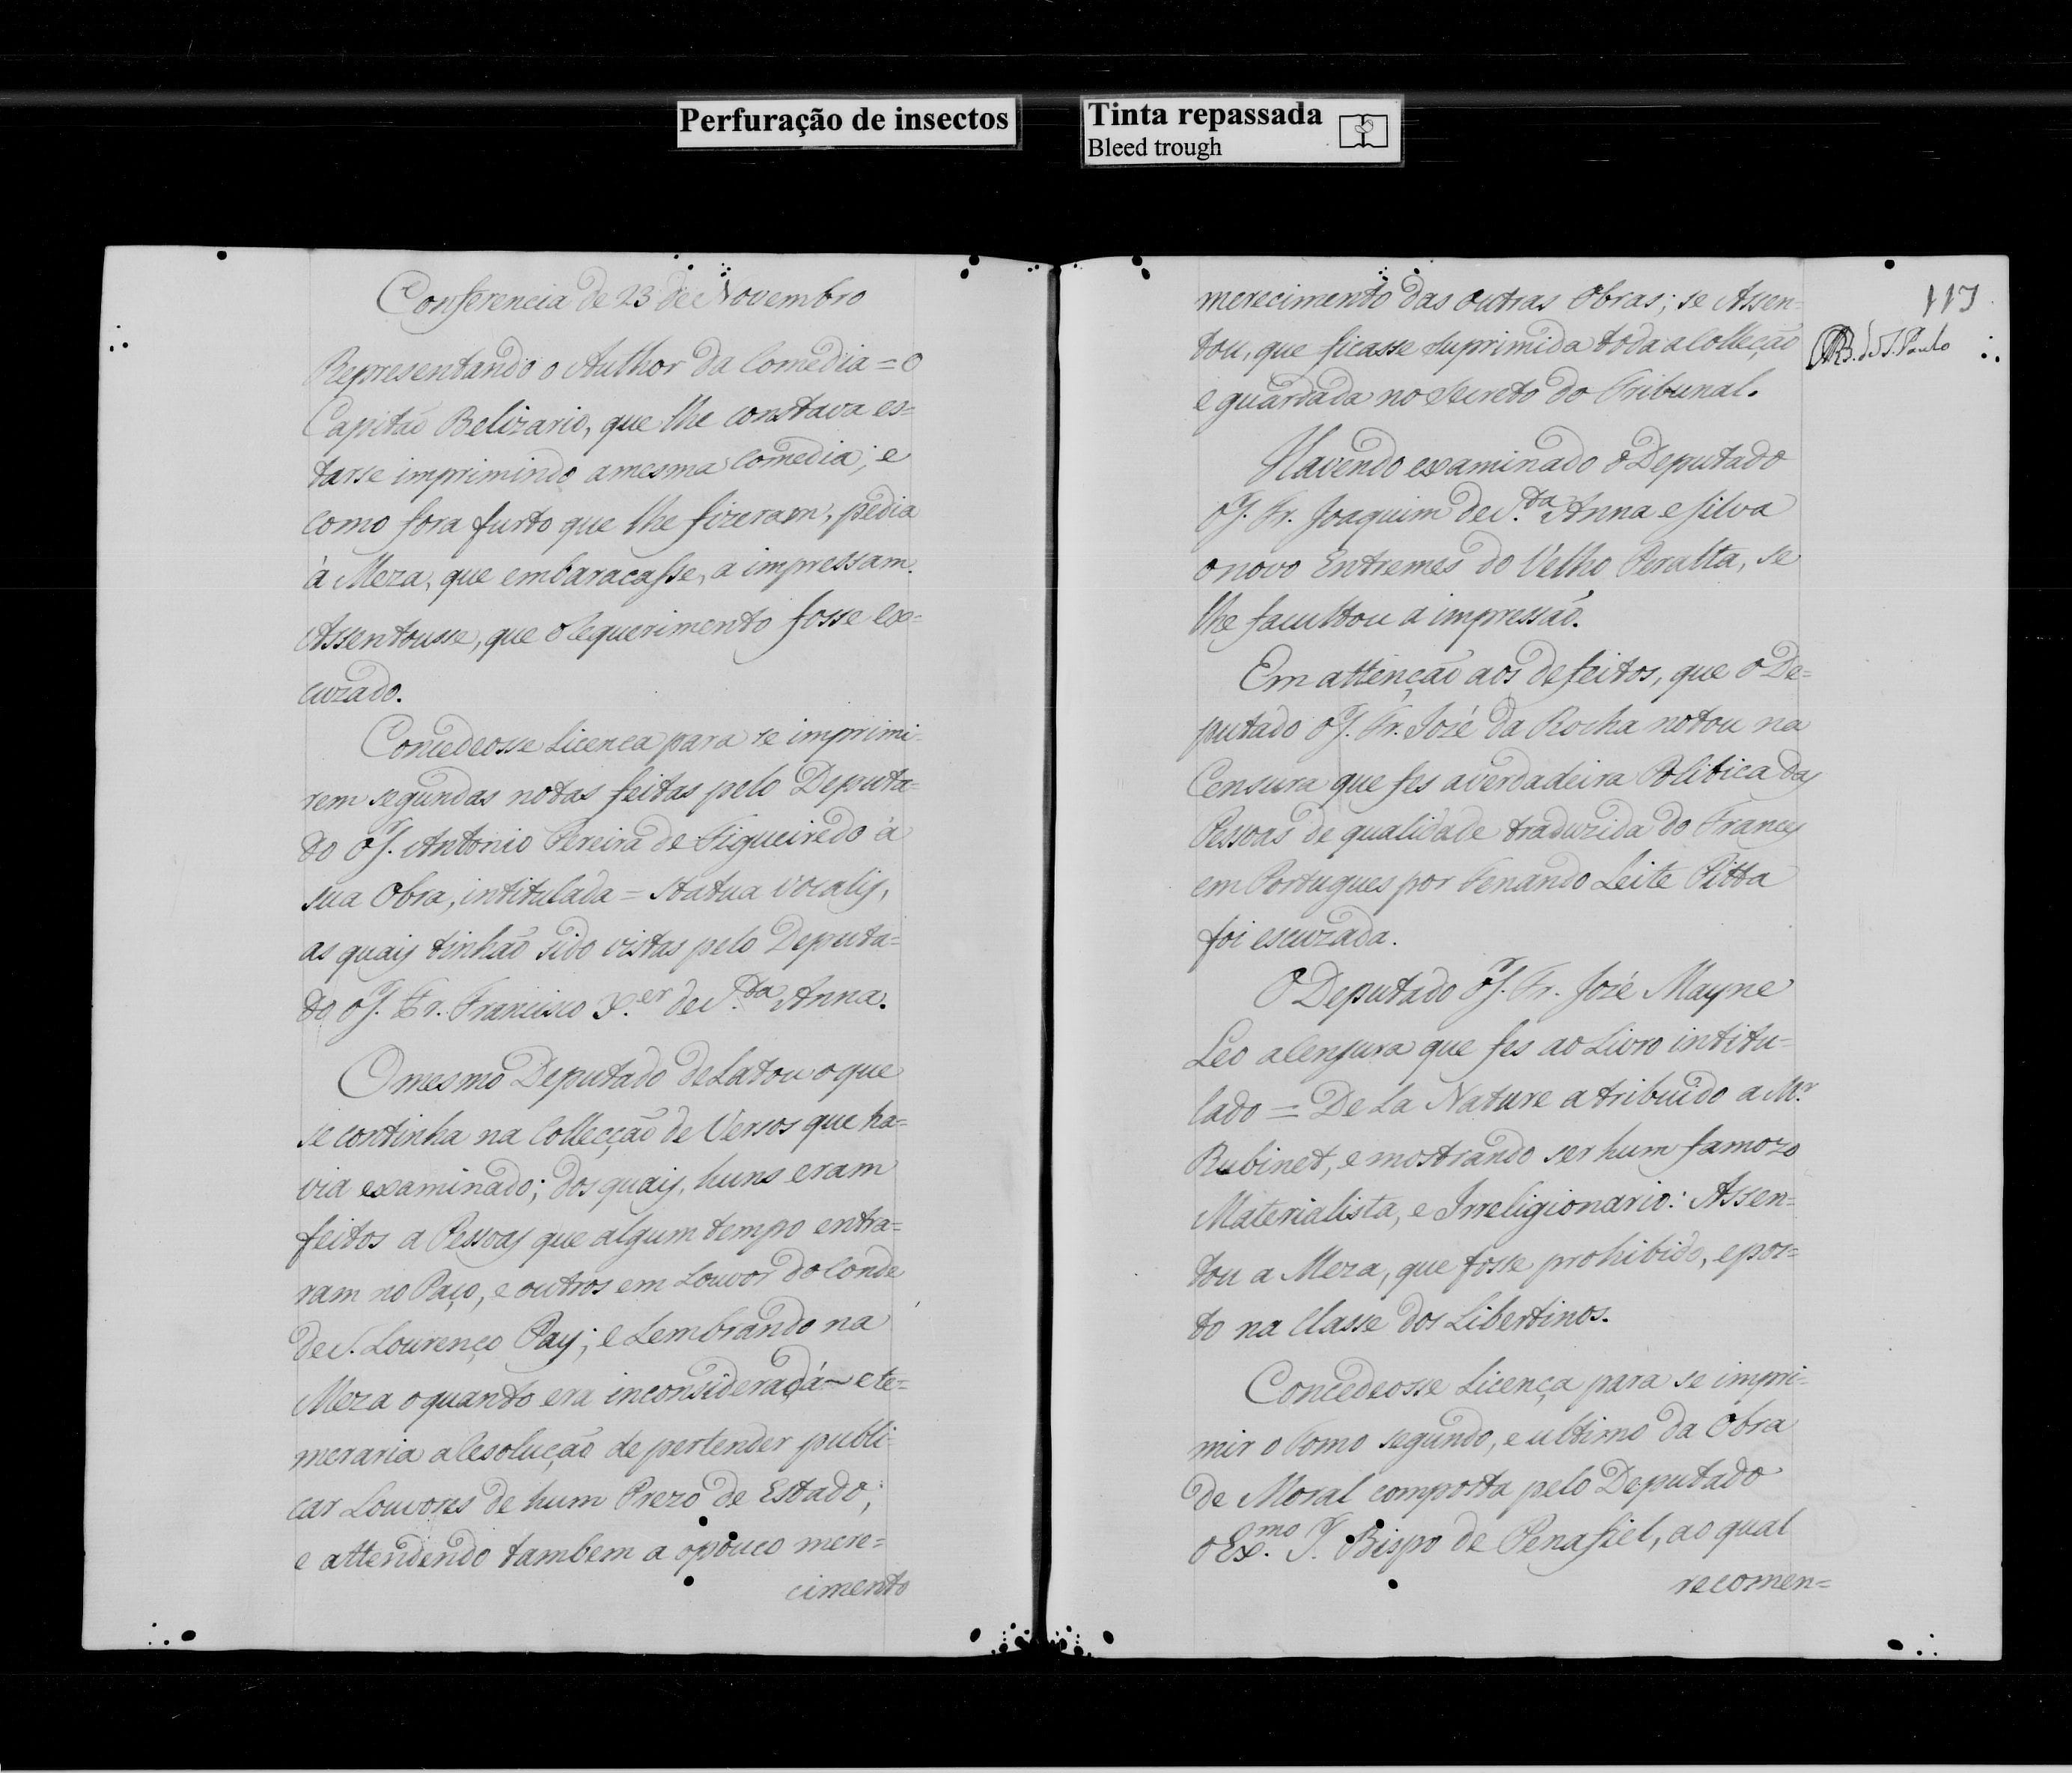 Perfuração de insectos
Tinta repassada
Bleed trough
Conferencia de 23 de Novembro
Representando o Author da Comedia = O
Capitaõ Belizario, que lhe constava es=
tarse imprimindo a mesma Comedia; e
como fora furto que lhe fizeram, pedia
à Meza, que embaracasse, a impressam.
Assentousse, que o Requerimento fosse Ex=
cuzado.
Concedeosse Licenca para se imprimi-
rem segundas notas feitas pelo Deputa=
do o S.r Antonio Pereira de Figueiredo à
sua Obra, intitulada = Statua Vocalis,
as quais tinhaõ sido vistas pelo Deputa=
do o S.r Fr. Francisco X.er de S.ta Anna.
O mesmo Deputado deLatou o que
se continha na Collecçaõ de Versos que ha=
via examinado; dos quais, huns eram
feitos a Pessoas que algum tempo entra=
ram no Paço, e outros em Louvor do Conde
de S. Lourenço Pay; e Lembrando na
Meza o quanto era inconsiderada e te=
meraria a Resoluçaõ de pertender publi-
car Louvores de hum Prezo de Estado;
e attendendo tambem a o pouco mere=
cimento
117
merecimento das outras Obras; se Assen-
tou, que ficasse suprimida toda a Colleçaõ
e guardada no Secreto do Tribunal.
R.B. de S. Paulo
Havendo examinado o Deputado
o S.r Fr. Joaquim de S.ta Anna e Silva
o novo Entremes do Velho Peralta, se
lhe facultou a impressaõ.
Em attençaõ aos defeitos, que o De=
putado o S.r Fr. Jozé da Rocha notou na
Censura que fes a verdadeira Politica das
Pessoas de qualidade traduzida do Frances
em Portugues por Fenando Leite Pitta
foi escuzada.
O Deputado o S.r Fr. Jozé Mayne
Leo a Censura que fes ao Livro intitu=
lado = De La Nature atribuido a M.r
Rubinet, e mostrando ser hum famozo
Materialista, e Irreligionario: Assen=
tou a Meza, que fosse prohibido, e pos=
to na Classe dos Libertinos.
Concedeosse Licença para se impri-
mir o Tomo segundo, e ultimo da Obra
de Moral composta pelo Deputado
o Ex.mo S.r Bispo de Penafiel, ao qual
recomen=